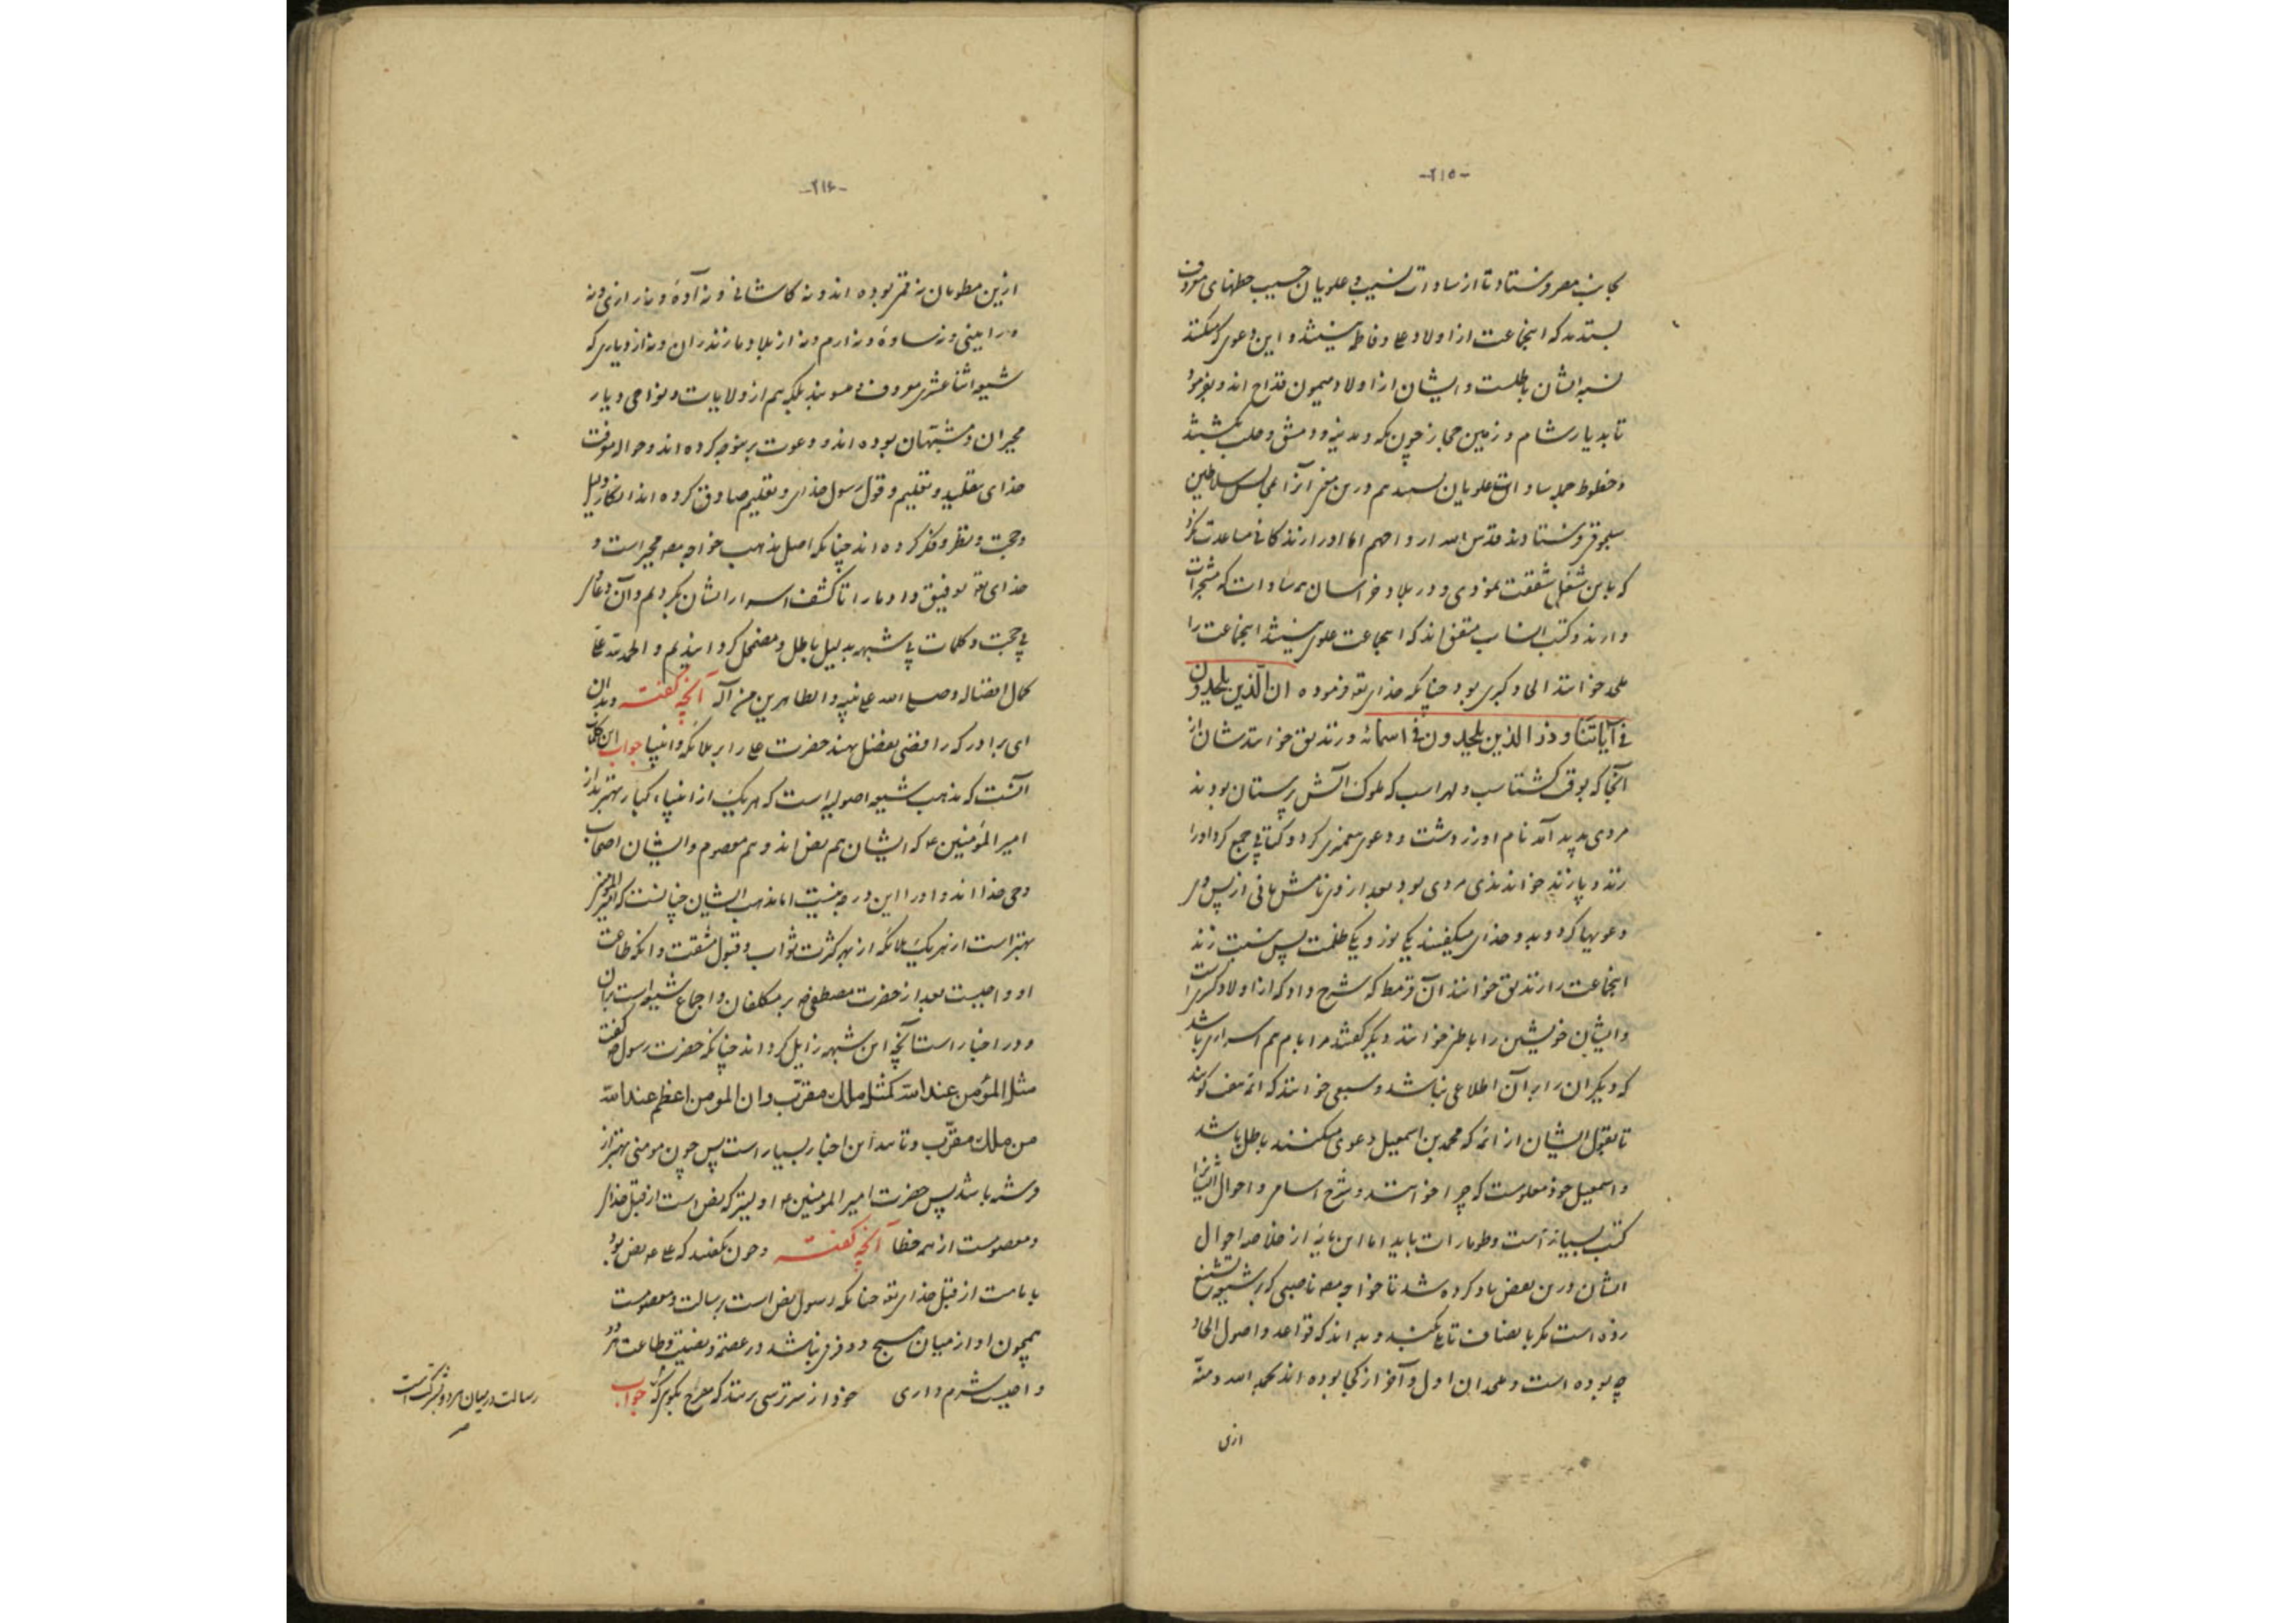 -۲۱۵-
بجانب مصر فرستاد تا از سادات نسیب و علویان حسیب خطهای معروف
بستدند که اینجماعت از اولاد علی و فاطمه نیستند و این دعوی که میکنند
نسبه ایشان باطلست و ایشان از اولاد میمون قداح اند و بفرمود
تا بدیار شام و زمین حجاز چون مکه و مدینه و دمشق و حلب بگشتند
و خطوط جمله سادات علویان بستدند هم درین معنی آنرا بمجلس سلاطین
سلجوقی فرستادند قدس الله ارواحهم
که باین شغل شفقت نمودی و در بلاد خراسان همه سادات که مشجرات
دارند و کتب انساب متفق اند که اینجماعت علوی نیستند اینجماعت را
ملحد خوانند الحاد کبری بود چنانکه خدای تعه فرموده ان الذین یلحدون
فی آیاتنا و ذر الذین یلحدون فی اسمائه و زندیق خوانندشان از
آنجا که بوقت گشتاسب و لهراسب که ملوک آتش پرستان بودند
مردی پدید آمد نام او زردشت و دعوی پیغمبری کرد و کتابی جمع کرد او را
زند و پازند خواندندی مردی بود بعد از وی نامش مانی از پس وی
دعویها کرد و بدو خدای میگفتند یکی نور و یکی ظلمت پس بنسبت زند
اینجماعت را زندیق خوانند آن قرمط که شرح داد که از اولاد گبری است
و ایشان خویشتن را باطنی خوانند دیگر گفتند ما با هم اسراری باشد
که دیگران را بر آن اطلاعی نباشد و سبعی خوانند که ائمه هفت گویند
تا بقول ایشان از ائمه که محمد بن اسمعیل دعوی میکنند باطل باشد
و اسمعیل خود معلومست که چرا خوانند و شرح اسامی و احوال ایشانرا
کتب بسیار است و طومارات باید اما این مایه از خلاصه احوال
ایشان درین بعض یاد کرده شد تا خواجه مصه ناصبی که بر شیعه تشنیع
زده است مگر بانصاف تأملی بکند و بداند که قواعد و اصول الحاد
چه بوده است و ملحدان اول و آخر از کجا بوده اند بحمد الله و منه
ازین
-۲۱۶-
ازین مطومان نه قمی بوده اند و نه کاشانی و نه آوه و نه رازی و نه
ورامینی و نه ساوه و نه ارم و نه از بلاد مازندران و نه از دیاری که
شیعه اثنا عشری معروف و منسوبند بلکه هم از ولایات و نواحی و دیار
مجبران و مشبهان بوده اند و دعوت بر بنوجه کرده اند و حواله معرفت
خدای بتقلید و تعلیم و قول رسول خدای و تعلیم صادق کرده اند انکار دلیل
و حجت و نظر و فکر کرده اند چنانکه اصل مذهب خواجه مصه مجبر است و
خدای تعه توفیق داد ما را تا کشف اسرار ایشان بکردیم و آن دعاوی
بی حجت و کلمات بی شبهه بدلیل باطل و مضمحل گردانیدیم و الحمد لله علی
کمال افضاله و صلی الله علی نبیه و الطاهرین من آله آنچه گفته و بدان
ای برادر که رافضی بفضل نهند حضرت علی را بر ملائکه و انبیا جواب این کلمات
آنست که مذهب شیعه اصولیه است که هر یک از انبیاء کبار بهترند از
امیر المؤمنین ع که ایشان هم نص اند و هم معصوم و ایشان اصحاب
وحی خدا اند و او را این درجه نیست اما مذهب ایشان چنانست که امیر المؤمنین
بهتر است از هر یک ملائکه از بهر کثرت ثواب و قبول مشقت و انکه طاعت
او واجبست بعد از حضرت مصطفی ص بر مکلفان و اجماع شیعه است بر آن
و در اخبار است آنچه این شبهه زایل گرداند چنانکه حضرت رسول ص گفت
مثل المؤمن عند الله کمثل ملك مقرّب و ان المومن اعظم عند الله
من ملك مقرّب و مانند این اخبار بسیار است پس چون مومنی بهتر از
فرشته باشد پس حضرت امیر المومنین ع اولیتر که نص است از قبل خدای
و معصومست از همه خطا آنچه گفته و چون گفتند که علی ع نص بود
بامامت از قبل خدای تعه چنانکه رسول نص است برسالت و معصومست
همچون او از میان هیچ دو فرقی نباشد در عصمة و نصیت و طاعت هر دو
واجبست شرم داری خود از سرترسی رستند که بگویی که جواب
رسالت در میان هر دو شرکت است